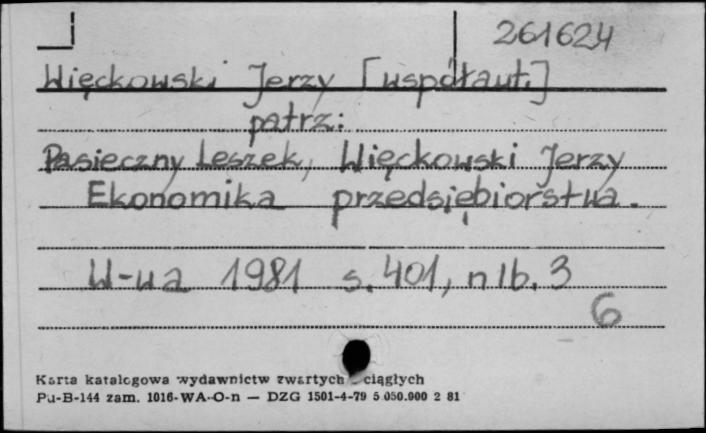 261624
Więckowski Jerzy [współaut.]
patrz:
Pasieczny Leszek, Więckowski Jerzy
Ekonomika przedsiębiorstwa.
W-wa 1981 s. 401, nlb. 3
6
Karta katalogowa wydawnictw zwartych ciągłych
Pu-B-144 zam. 1016-WA-O-n — DZG 1501-4-79 5 050.000 2 81